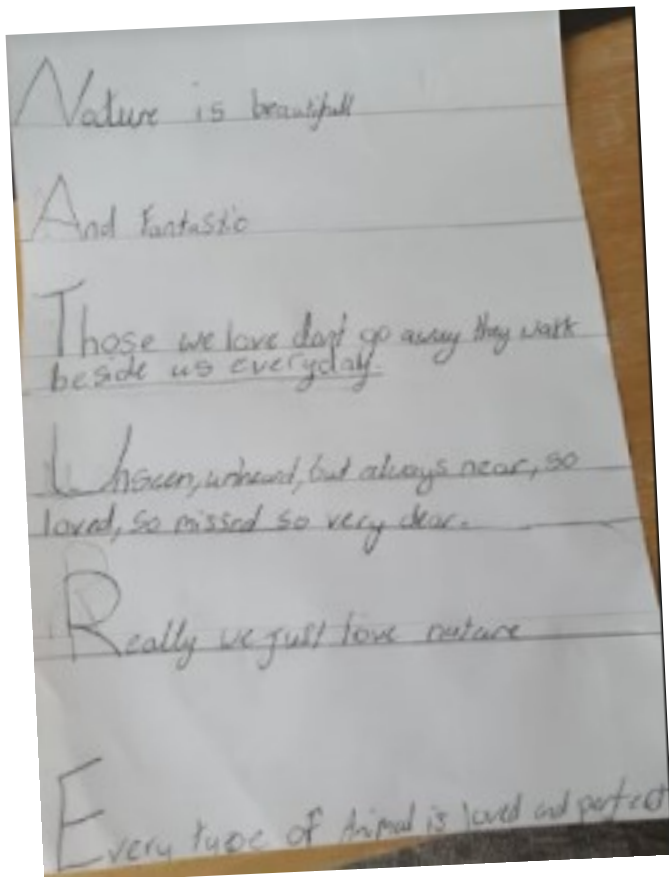 Nature is beautifull
And Fantastic
Those we love don't go away they walk
beside us everyday.
Unseen, unheard, but always near, so
loved, so missed so very dear.
Really we just love nature
Every type of Animal is loved and perfect